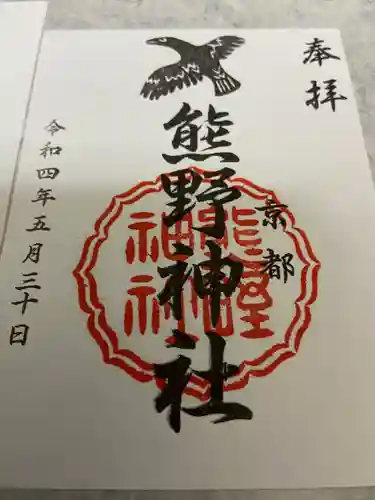 奉拝
京都
熊野神社
令和四年五月三十日